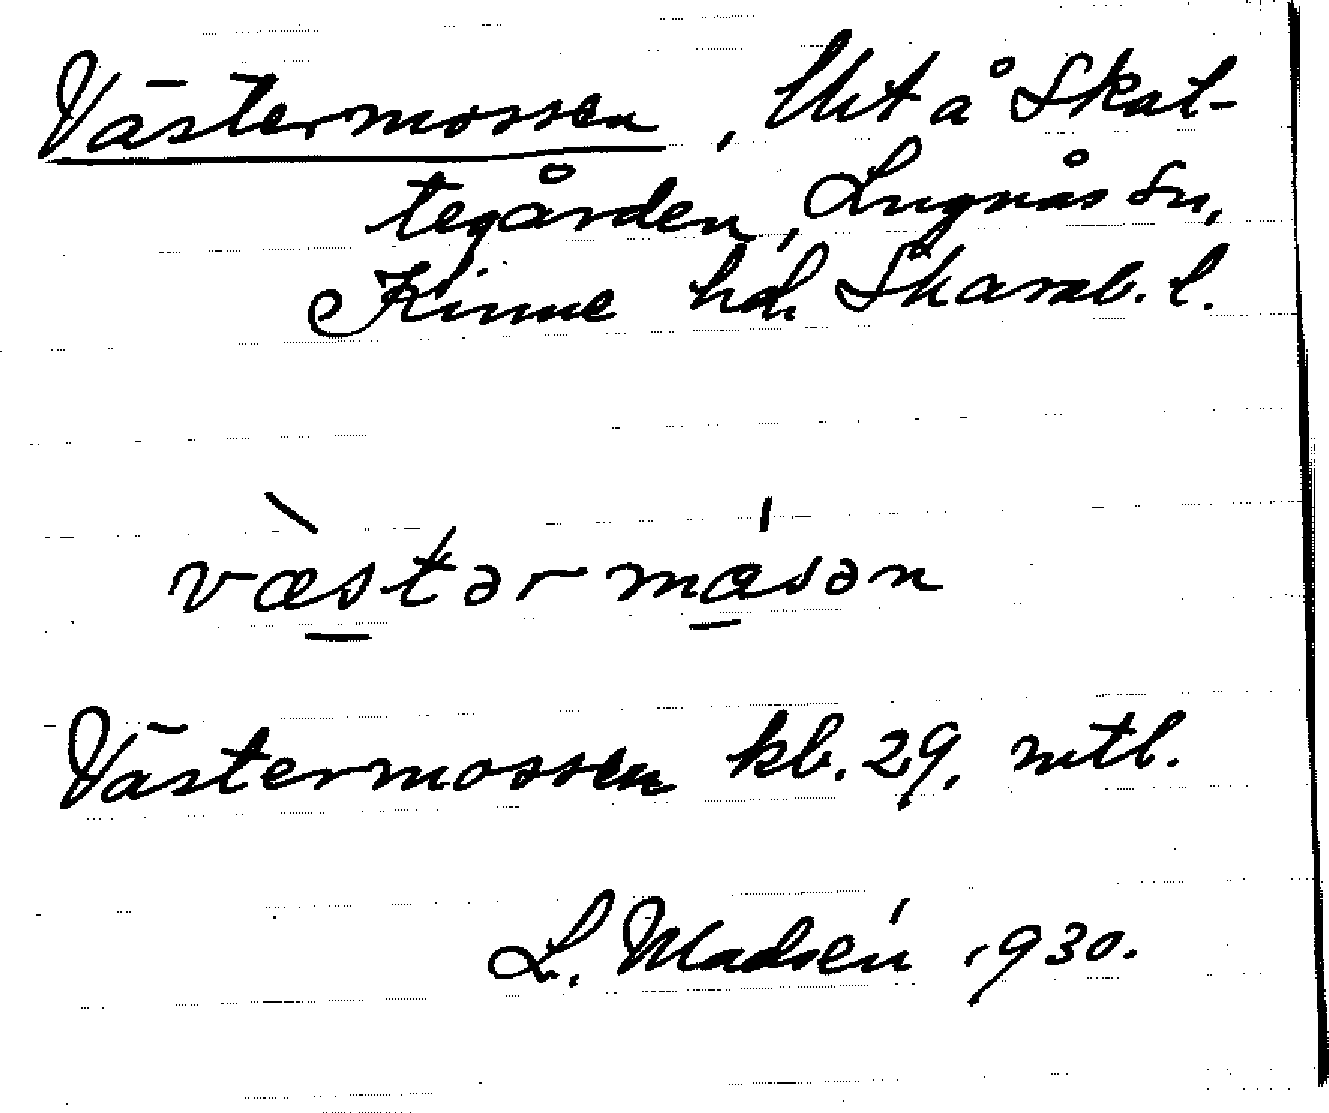 Västermossen, Utä å Skat-
tegården, Lugnås sn,
Kinne hd, Skarab. l.
væstərmåsən
Västermossen kb. 29, mtl.
L. Madsén 1930.